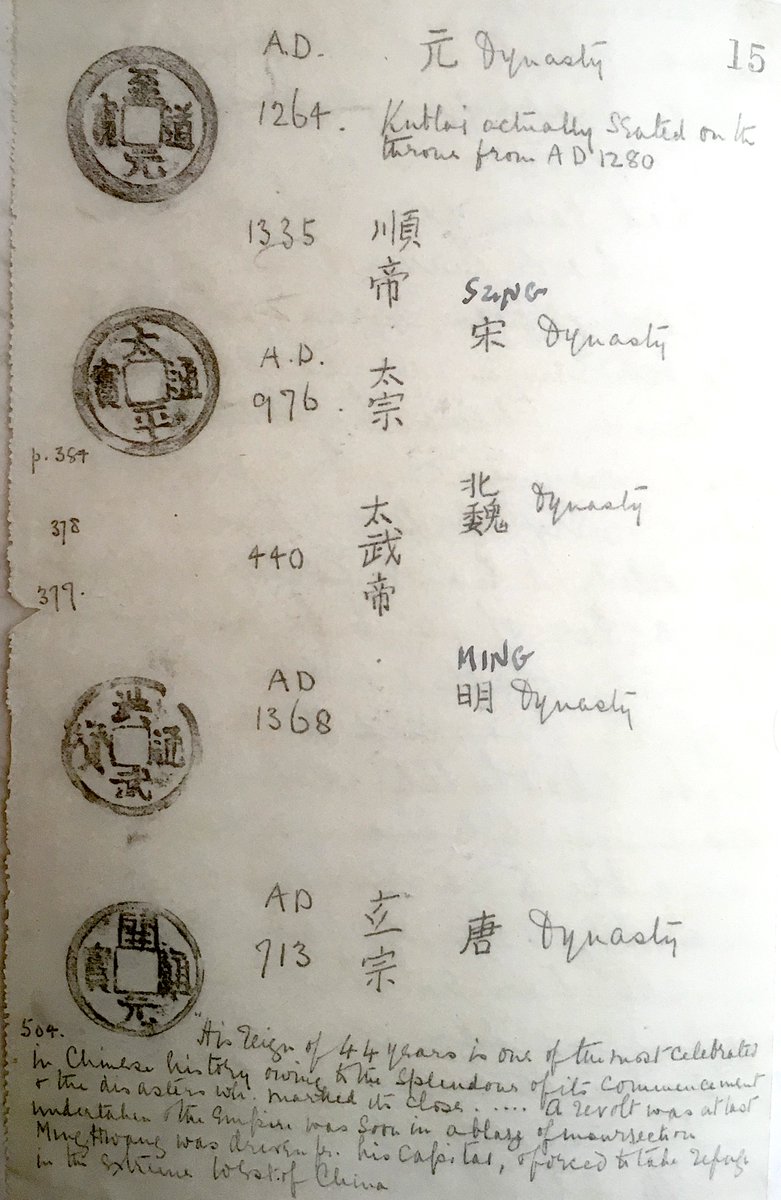 15
A.D. 元 Dynasty
至道元寳
1264. Kublai actually Seated on the
throne from AD 1280
1335 順帝
SUNG
宋 Dynasty
太平通寳
A.D.
976. 太宗
p. 384
北魏 Dynasty
378
太武帝
440
399.
MING
明 Dynasty
洪武通寳
AD
1368
開元通寳
AD
713 立宗 唐 Dynasty
504.
"His reign of 44 years is one of the most celebrated
in Chinese history owing to the Splendour of its Commencement
& the disasters wh. marked its close...... A revolt was at last
undertaken & the Empire was soon in a blaze of insurrection
Ming Hwang was driven fr. his Capital, & forced to take refuge
in the Extreme West of China